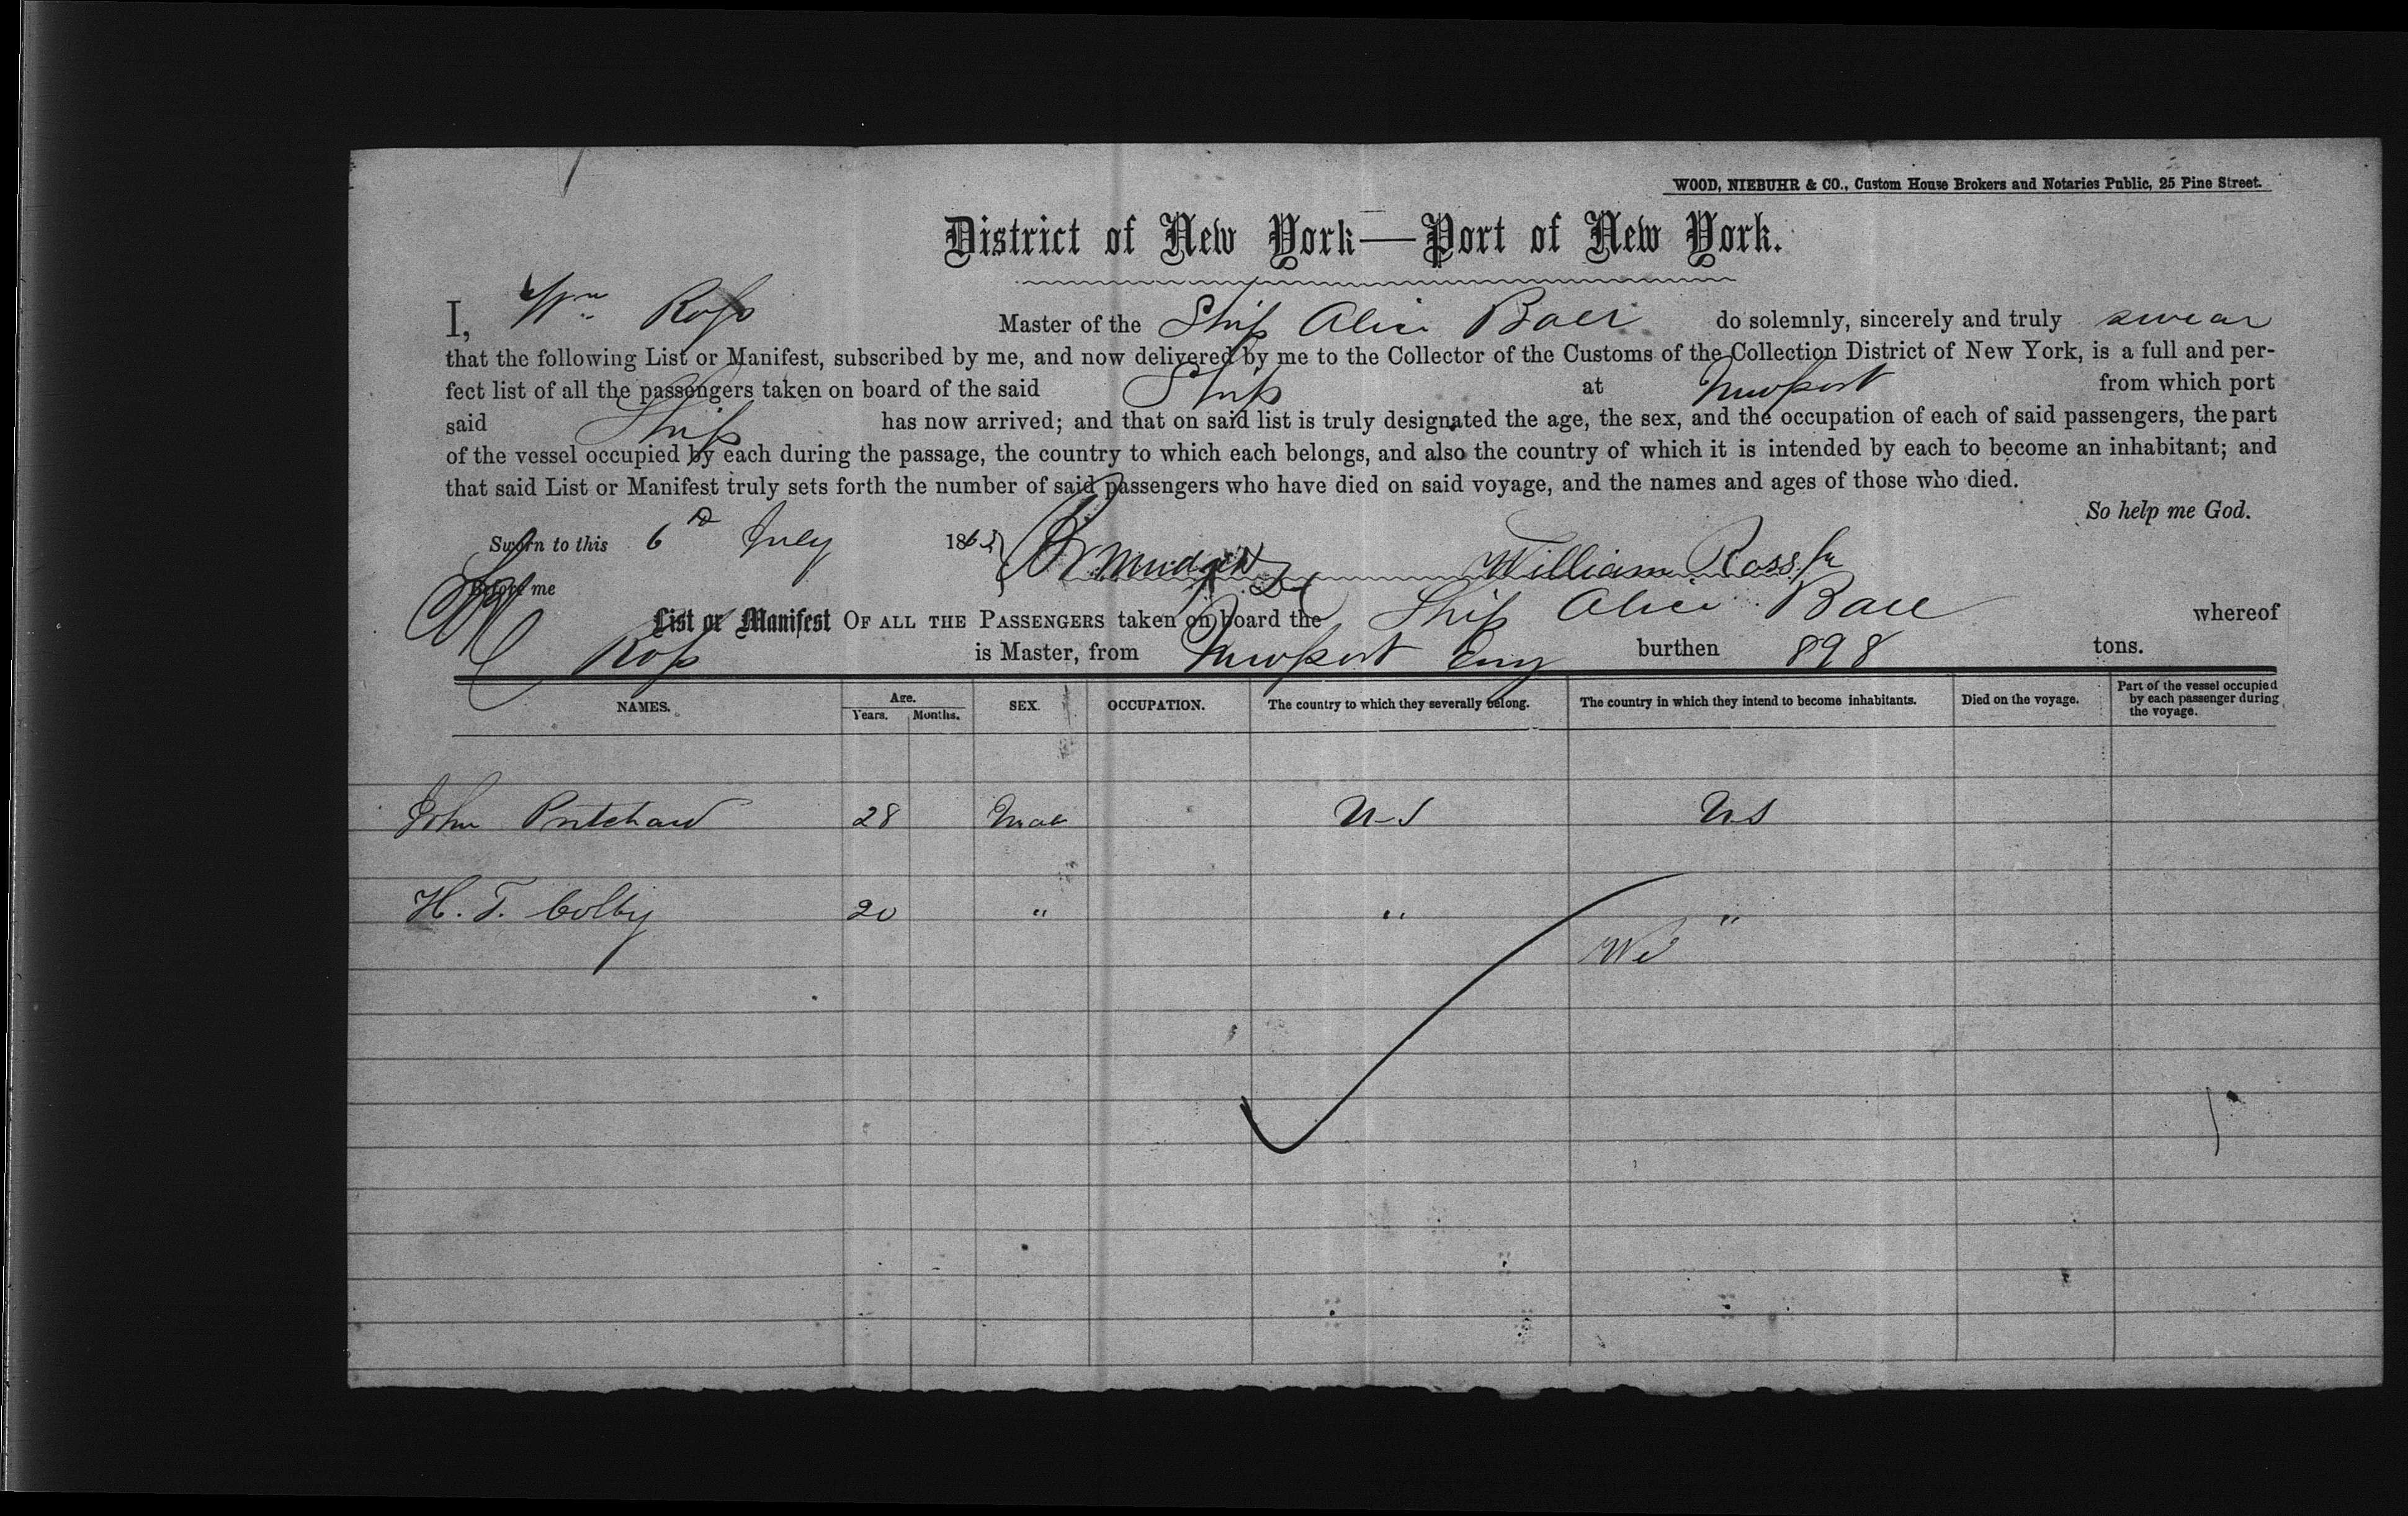 WOOD, NIEBUHR & CO., Custom House Brokers and Notaries Public, 25 Pine Street.
District of New York—Port of New York.
I, Wm Ross Master of the Ship Alice Ball do solemnly, sincerely and truly swear
that the following List or Manifest, subscribed by me, and now delivered by me to the Collector of the Customs of the Collection District of New York, is a full and per-
fect list of all the passengers taken on board of the said Ship at Newport from which port
said Ship has now arrived; and that on said list is truly designated the age, the sex, and the occupation of each of said passengers, the part
of the vessel occupied by each during the passage, the country to which each belongs, and also the country of which it is intended by each to become an inhabitant; and
that said List or Manifest truly sets forth the number of said passengers who have died on said voyage, and the names and ages of those who died.
So help me God.
Sworn to this 6th July 1865 William Ross Jr
Before me
List or Manifest OF ALL THE PASSENGERS taken on board the Ship Alice Ball whereof
Ross is Master, from Newport Eng burthen 898 tons.
NAMES. Age. Years. Months. SEX. OCCUPATION. The country to which they severally belong. The country in which they intend to become inhabitants. Died on the voyage. Part of the vessel occupied by each passenger during the voyage.
John Pritchard 28 Male U-S U-S
H. T. Colby 20 " " "